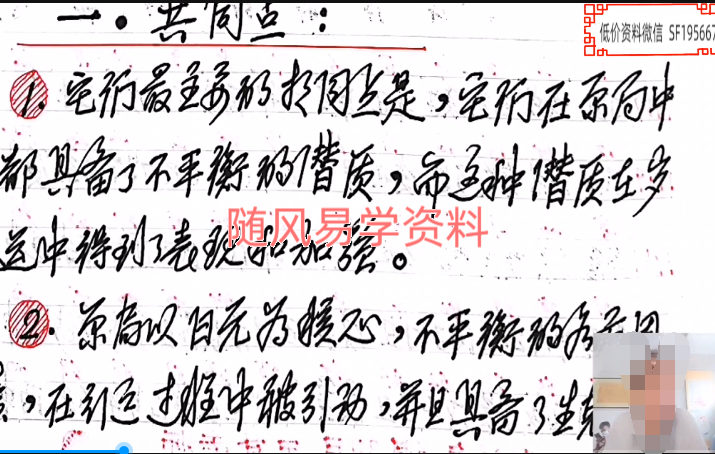 一·共同点：
低价资料微信 SF195667
1. 它们最主要的共同点是，它们在原局中
都具备了不平衡的潜质，而这种潜质在岁
运中得到了表现和加强。
随风易学资料
2. 原局以日元为核心，不平衡的各
，在引运过程中被引动，并且具备了生